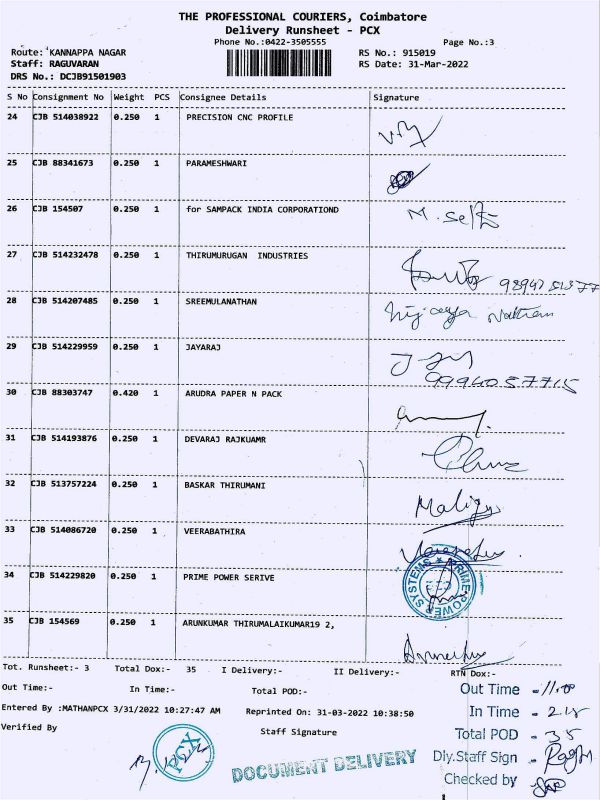 THE PROFESSIONAL COURIERS, Coimbatore
Delivery Runsheet - PCX
Phone No.:0422-3505555 Page No.:3
Route: KANNAPPA NAGAR RS No.: 915019
Staff: RAGUVARAN RS Date: 31-Mar-2022
DRS No.: DCJB91501903
S No Consignment No Weight PCS Consignee Details Signature
24 CJB 514038922 0.250 1 PRECISION CNC PROFILE
25 CJB 88341673 0.250 1 PARAMESHWARI
26 CJB 154507 0.250 1 for SAMPACK INDIA CORPORATIOND
27 CJB 514232478 0.250 1 THIRUMURUGAN INDUSTRIES
28 CJB 514207485 0.250 1 SREEMULANATHAN
29 CJB 514229959 0.250 1 JAYARAJ
9994057715
30 CJB 88303747 0.420 1 ARUDRA PAPER N PACK
31 CJB 514193876 0.250 1 DEVARAJ RAJKUAMR
32 CJB 513757224 0.250 1 BASKAR THIRUMANI
33 CJB 514086720 0.250 1 VEERABATHIRA
34 CJB 514229820 0.250 1 PRIME POWER SERIVE
PRIME POWER SYSTEMS
35 CJB 154569 0.250 1 ARUNKUMAR THIRUMALAIKUMAR19 2,
Tot. Runsheet:- 3 Total Dox:- 35 I Delivery:- II Delivery:- RTN Dox:-
Out Time:- In Time:- Total POD:-
Out Time - 11.00
Entered By :MATHANPCX 3/31/2022 10:27:47 AM Reprinted On: 31-03-2022 10:38:50
In Time -
Verified By Staff Signature
Total POD - 35
PCX
DOCUMENT DELIVERY
Dly.Staff Sign -
Checked by